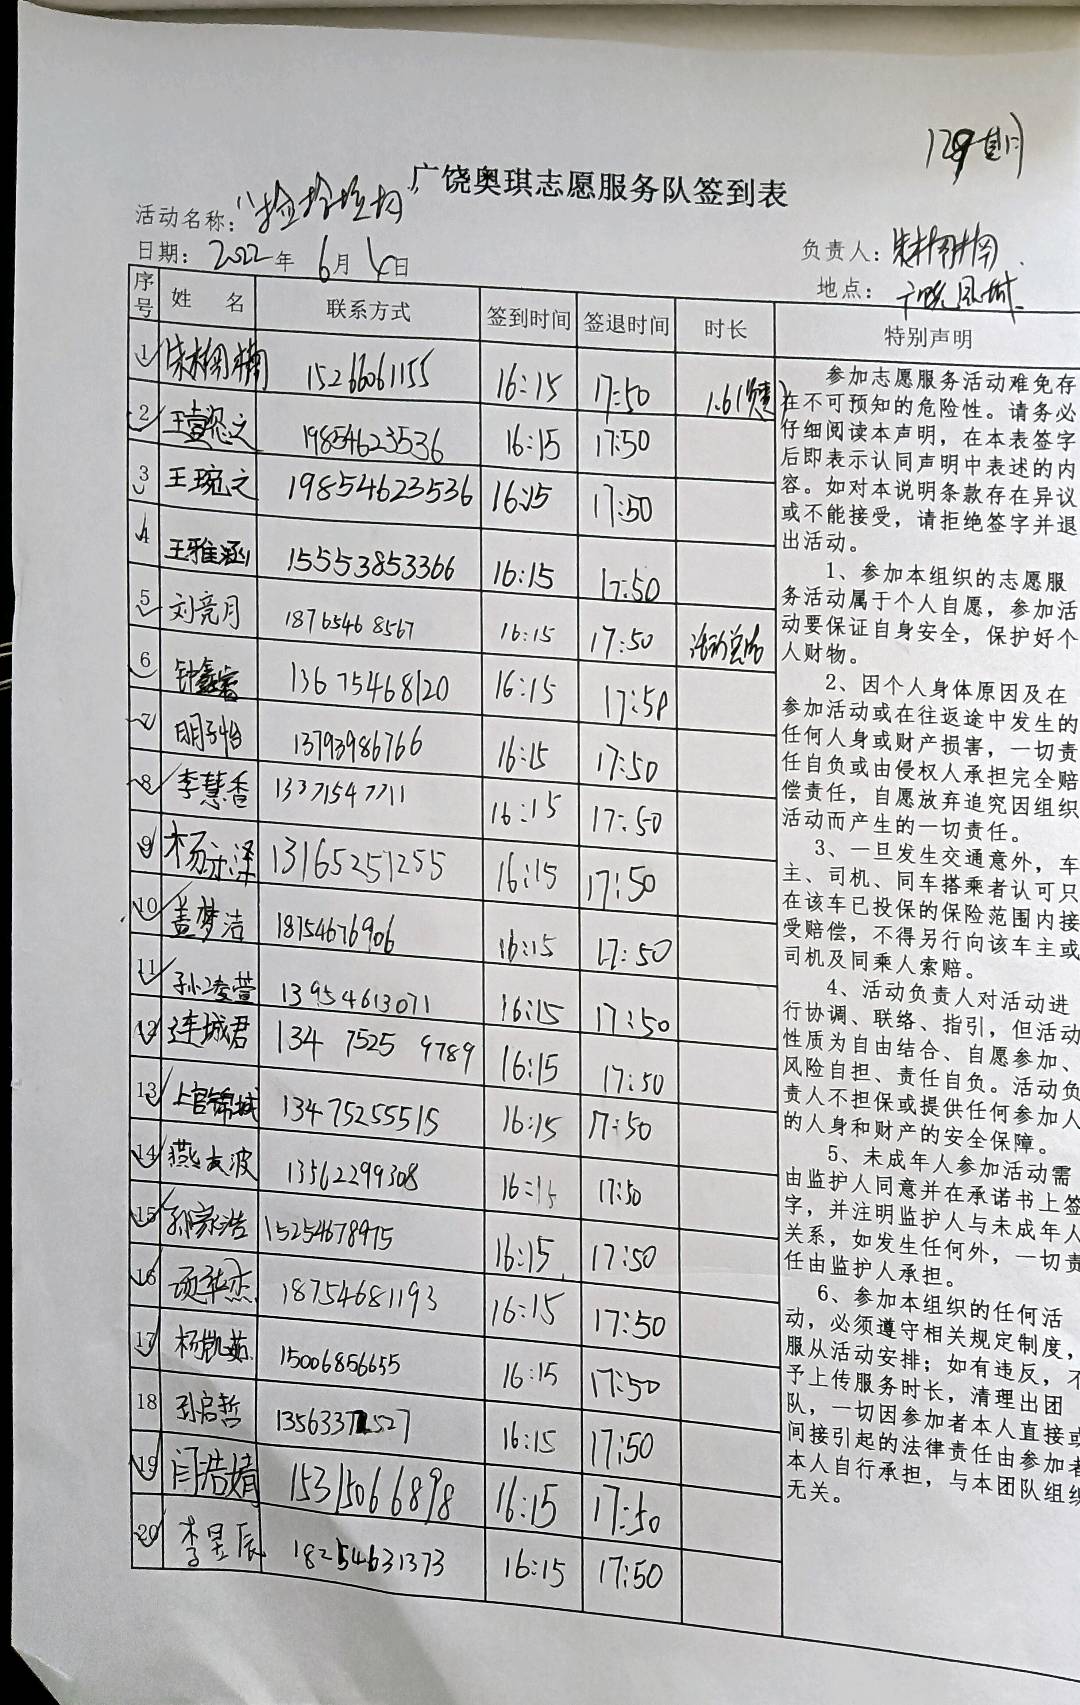 129期
广饶奥琪志愿服务队签到表
活动名称："捡拾垃圾"
负责人：
日期：2022年6月4日
地点：广饶凤城
序号 姓名 联系方式 签到时间 签退时间 时长 特别声明
1 15266061155 16:15 17:50 1.6
2 王壹恣之 19854623536 16:15 17:50
3 王琬之 19854623536 16:15 17:50
4 王雅涵 15553853366 16:15 17:50
5 刘亮月 18765468567 16:15 17:50 活动总结
6 13675468120 16:15 17:50
7 明子怡 13793986766 16:15 17:50
8 李慧香 13371547711 16:15 17:50
9 13165251255 16:15 17:50
10 盖梦洁 18754676906 16:15 17:50
11 孙凌萱 13954613071 16:15 17:50
12 连城君 134 7525 9789 16:15 17:50
13 上官锦城 13475255515 16:15 17:50
14 燕友波 13562299308 16:15 17:50
15 孙家浩 15254678975 16:15 17:50
16 18754681193 16:15 17:50
17 杨凯茹 15006856655 16:15 17:50
18 孙启哲 16:15 17:50
19 闫浩婧 15315066898 16:15 17:50
20 李昱辰 18254631373 16:15 17:50
参加志愿服务活动难免存
在不可预知的危险性。请务必
仔细阅读本声明，在本表签字
后即表示认同声明中表述的内
容。如对本说明条款存在异议
或不能接受，请拒绝签字并退
出活动。
1、参加本组织的志愿服
务活动属于个人自愿，参加活
动要保证自身安全，保护好个
人财物。
2、因个人身体原因及在
参加活动或在往返途中发生的
任何人身或财产损害，一切责
任自负或由侵权人承担完全赔
偿责任，自愿放弃追究因组织
活动而产生的一切责任。
3、一旦发生交通意外，车
主、司机、同车搭乘者认可只
在该车已投保的保险范围内接
受赔偿，不得另行向该车主或
司机及同乘人索赔。
4、活动负责人对活动进
行协调、联络、指引，但活动
性质为自由结合、自愿参加、
风险自担、责任自负。活动负
责人不担保或提供任何参加人
的人身和财产的安全保障。
5、未成年人参加活动需
由监护人同意并在承诺书上签
字，并注明监护人与未成年人
关系，如发生任何外，一切责
任由监护人承担。
6、参加本组织的任何活
动，必须遵守相关规定制度，
服从活动安排；如有违反，不
予上传服务时长，清理出团
队，一切因参加者本人直接或
间接引起的法律责任由参加者
本人自行承担，与本团队组织
无关。